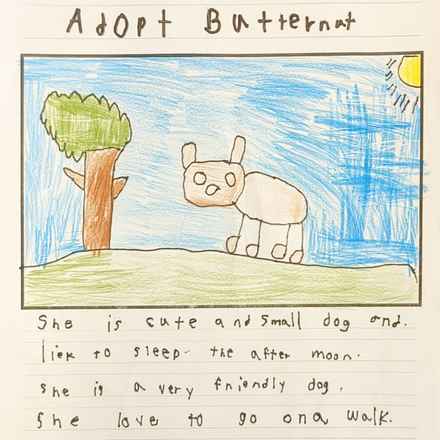 Adopt Butternut
She is cute and small dog and.
liek to sleep the after moon.
she is a very friendly dog.
She love to go on a walk.